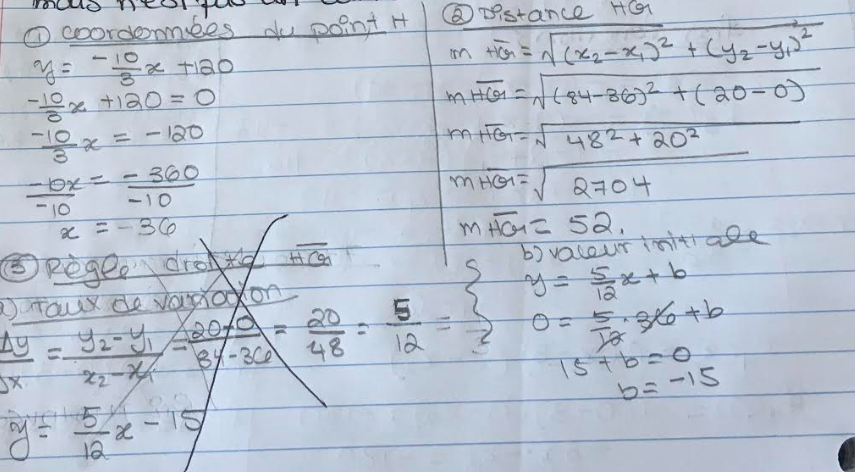 ① coordonnées du point H
y = -10/3 x + 120
-10/3 x + 120 = 0
-10/3 x = -120
-10x/-10 = -360/-10
x = -36
② Distance HG
m HG = √(x₂-x₁)² + (y₂-y₁)²
m HG = √(84-36)² + (20-0)
m HG = √48² + 20²
m HG = √2704
m HG = 52.
③ Règle droite HG
a) Taux de variation
Δy/Δx = y₂-y₁/x₂-x₁ = 20-0/84-36 = 20/48 = 5/12 =
y = 5/12 x - 15
b) valeur initiale
y = 5/12 x + b
0 = 5/12 · 36 + b
15 + b = 0
b = -15